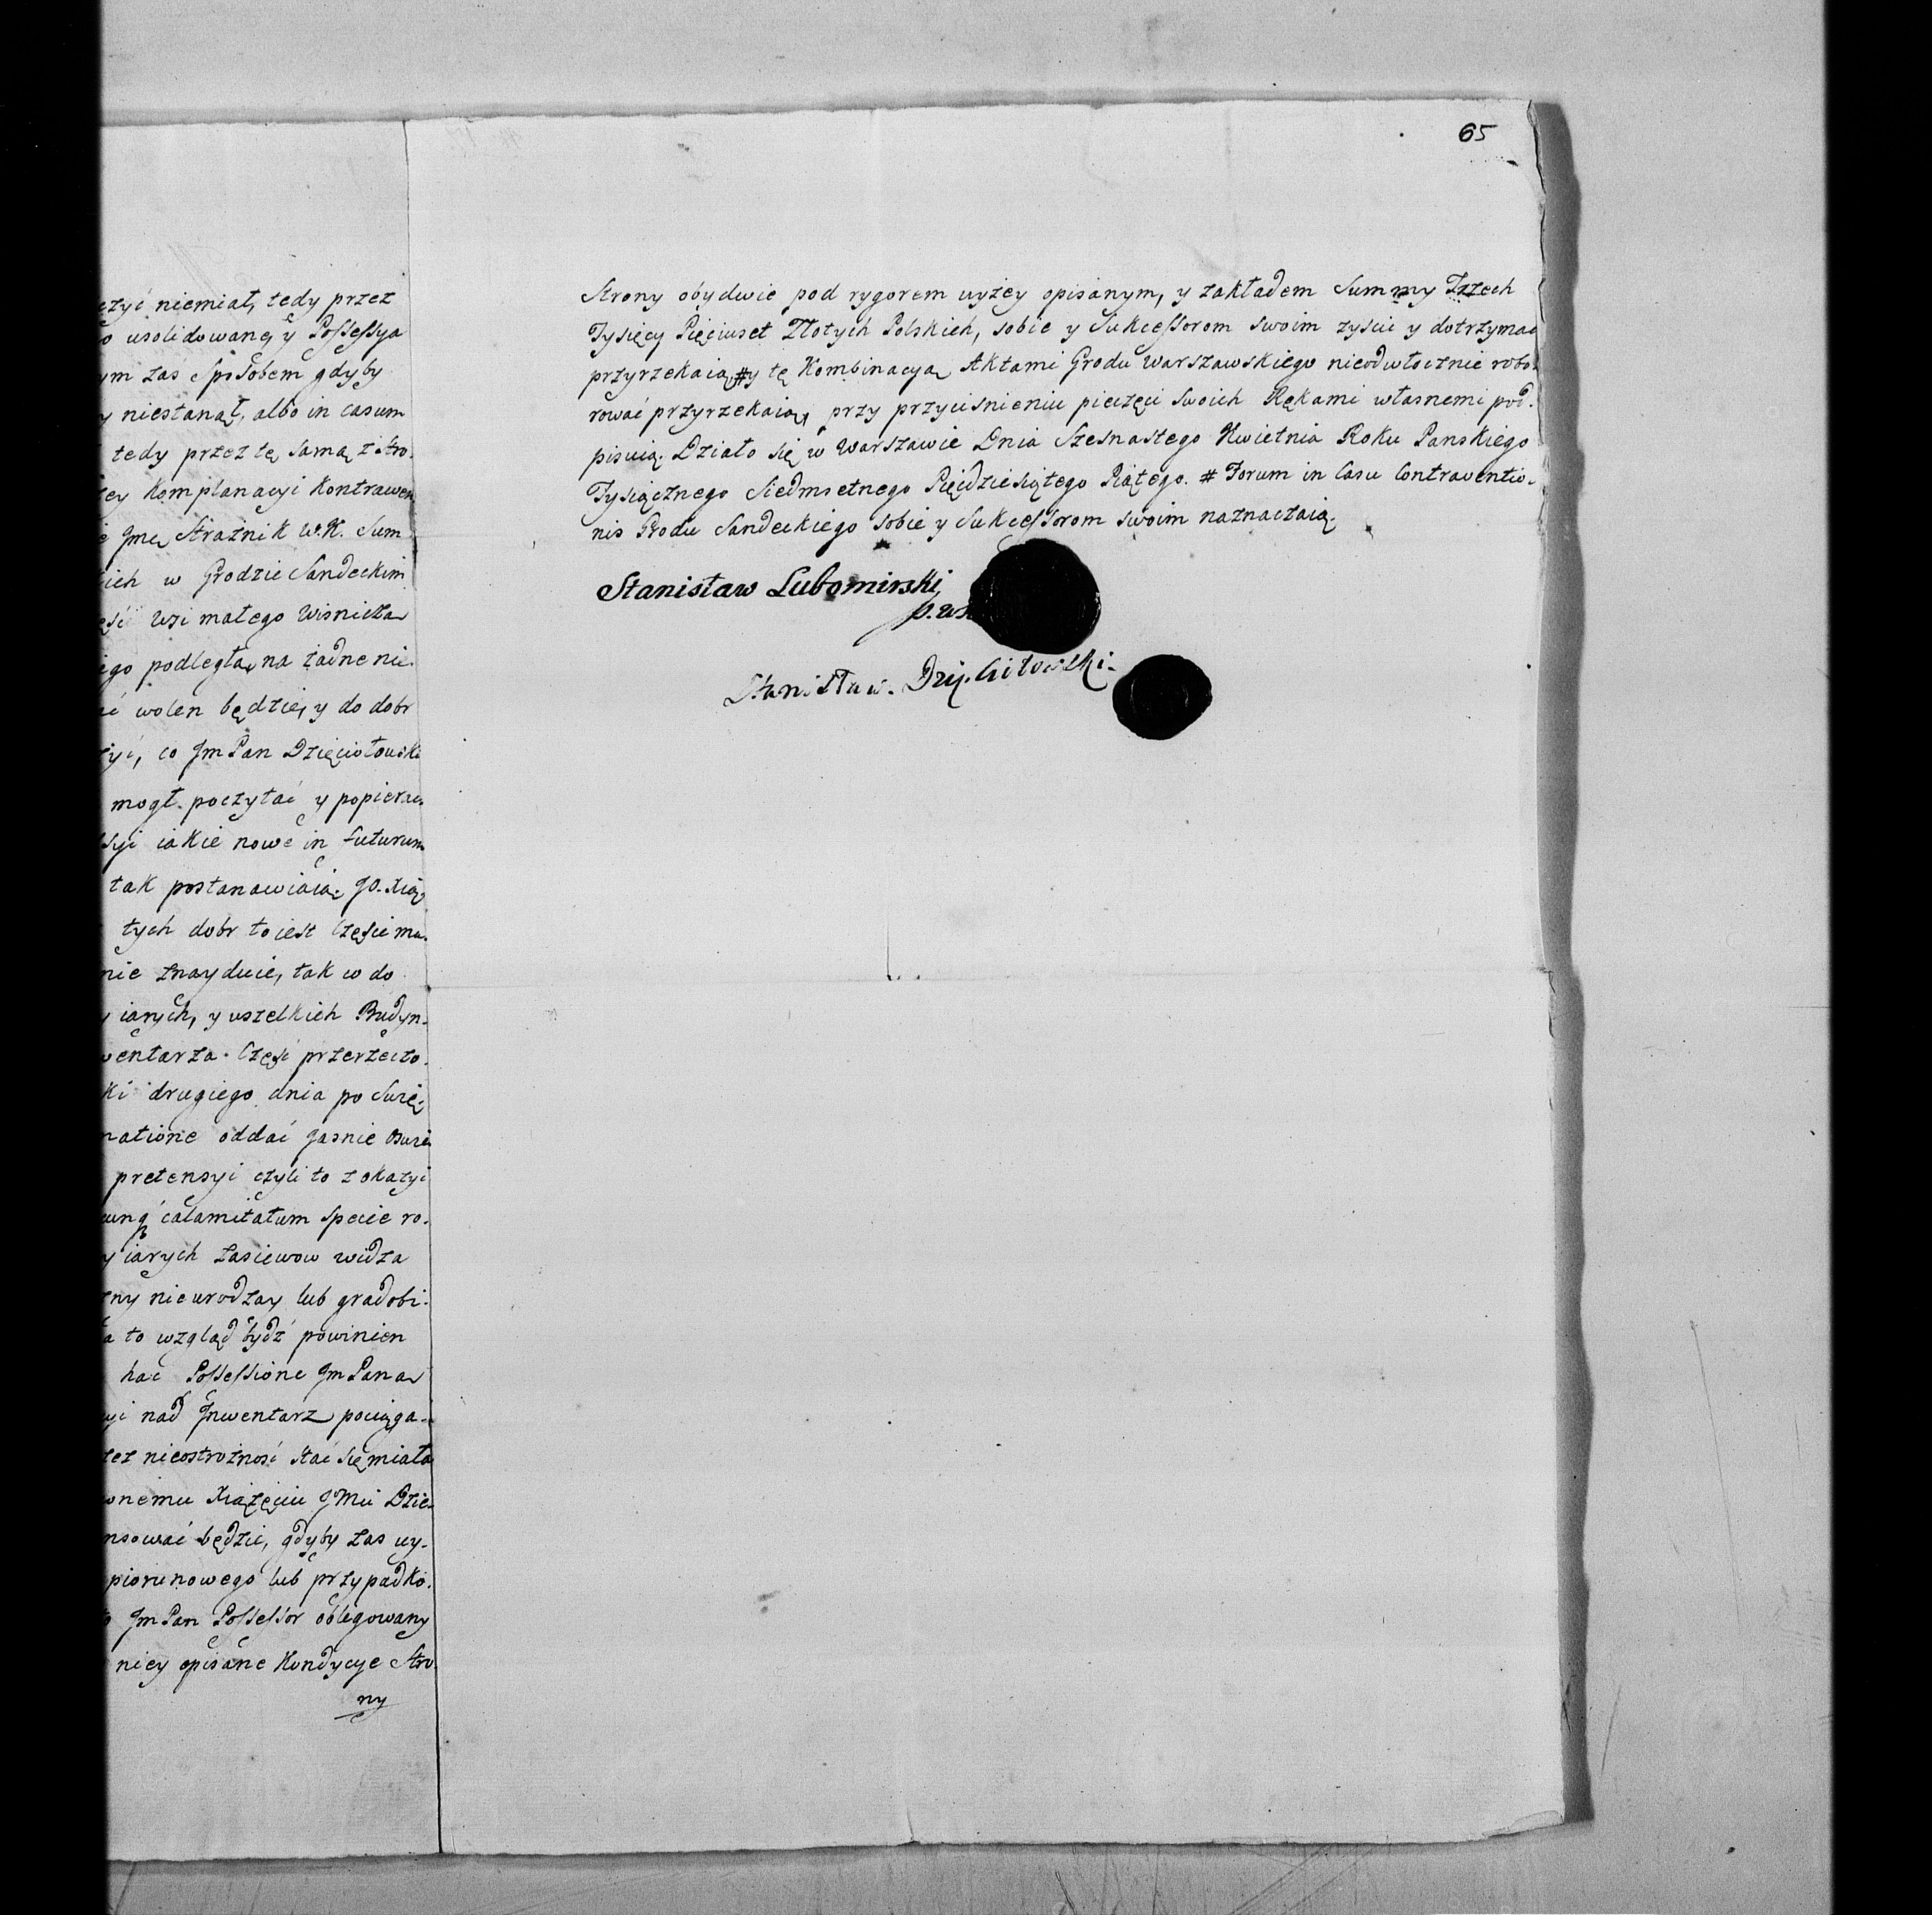 65
niemiał, tedy przez
usolidowaną y Possessya
zas sposobem gdyby
niestanął, albo in casum
tedy przez tę samą z stro.
Komplanacyi Kontrawen
Jmć Straznik W.K. Sum
w Grodzie Sandeckim
wsi małego Wisnicza
podległa, na zadne nie.
wolen będzie, y do dobr
co Jm Pan Dzięciołowski
mogł poczytać y popierać
iakie nowe in futurum
tak postanawiaią: JO. Xią
tych dobr to iest Częsci ma.
znayduie, tak w do
iarych, y wszelkich Budyn.
Częsć przerzeczo.
drugiego dnia po Swię
oddać Jasnie Oswie
pretensyi czyli to z okazyi
calamitatum specie ro.
y iarych zasiewow widza
nieurodzay lub gradobi.
to wzgląd bydz powinien
hac Possessione Jm Pana
nad Inwentarz pociąga-
nieostroznosć stać się miała
Xiązęciu JMci Dzie-
będzie, gdyby zas wy-
piorunowego lub przypadko.
Jm Pan Possessor oblegowany
niey opisane Kondycye Stro
ny
Strony obydwie pod rygorem wyzey opisanym, y zakładem Summy Trzech
Tysięcy Pięciuset Złotych Polskich, sobie y Sukcessorom swoim zyscić y dotrzymać
przyrzekaią # y tę Kombinacyą Aktami Grodu Warszawskiego nieodwłocznie robo-
rować przyrzekaią, przy przycisnieniu pieczęci swoich Rękami własnemi pod.
pisuią. Działo się w Warszawie Dnia Szesnastego Kwietnia Roku Panskiego
Tysiącznego Siedmsetnego Pięćdziesiątego Piątego. # Forum in Casu Contraventio-
nis Grodu Sandeckiego sobie y Sukcessorom swoim naznaczaią.
Stanisław Lubomirski
Stanisław